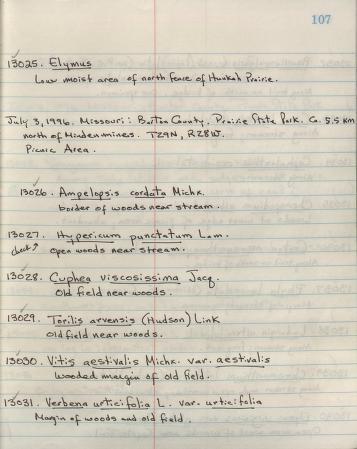 107
13025. Elymus
Low moist area of north fence of Hunkah Prairie.
July 3, 1996. Missouri: Barton County. Prairie State Park. Ca. 5.5 km
north of Mindenmines. T29N, R28W.
Picnic Area.
13026. Ampelopsis cordata Michx.
border of woods near stream.
13027. Hypericum punctatum Lam.
check ↗ open woods near stream.
13028. Cuphea viscosissima Jacq.
Old field near woods.
13029. Torilis arvensis (Hudson) Link
Old field near woods.
13030. Vitis aestivalis Michx. var. aestivalis
Wooded margin of old field.
13031. Verbena urticifolia L. var. urticifolia
Margin of woods and old field.